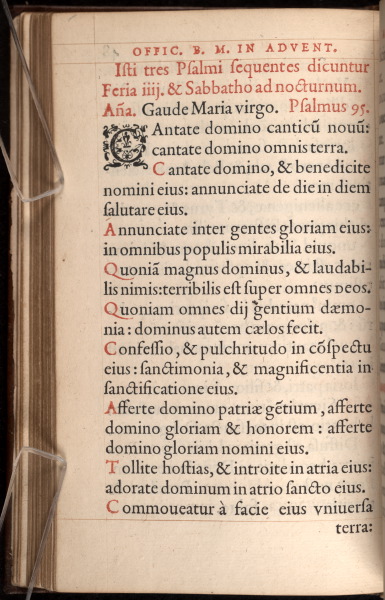 OFFIC. B. M. IN ADVENT.
Isti tres Psalmi sequentes dicuntur
Feria iiij. & Sabbatho ad nocturnum.
Aña. Gaude Maria virgo. Psalmus 95.
CAntate domino canticũ nouũ:
cantate domino omnis terra.
Cantate domino, & benedicite
nomini eius: annunciate de die in diem
salutare eius.
Annunciate inter gentes gloriam eius:
in omnibus populis mirabilia eius.
Quoniã magnus dominus, & laudabi-
lis nimis: terribilis est super omnes deos.
Quoniam omnes dij gentium dæmo-
nia: dominus autem cælos fecit.
Confessio, & pulchritudo in cõspectu
eius: sanctimonia, & magnificentia in
sanctificatione eius.
Afferte domino patriæ gẽtium, afferte
domino gloriam & honorem: afferte
domino gloriam nomini eius.
Tollite hostias, & introite in atria eius:
adorate dominum in atrio sancto eius.
Commoueatur à facie eius vniuersa
terra: